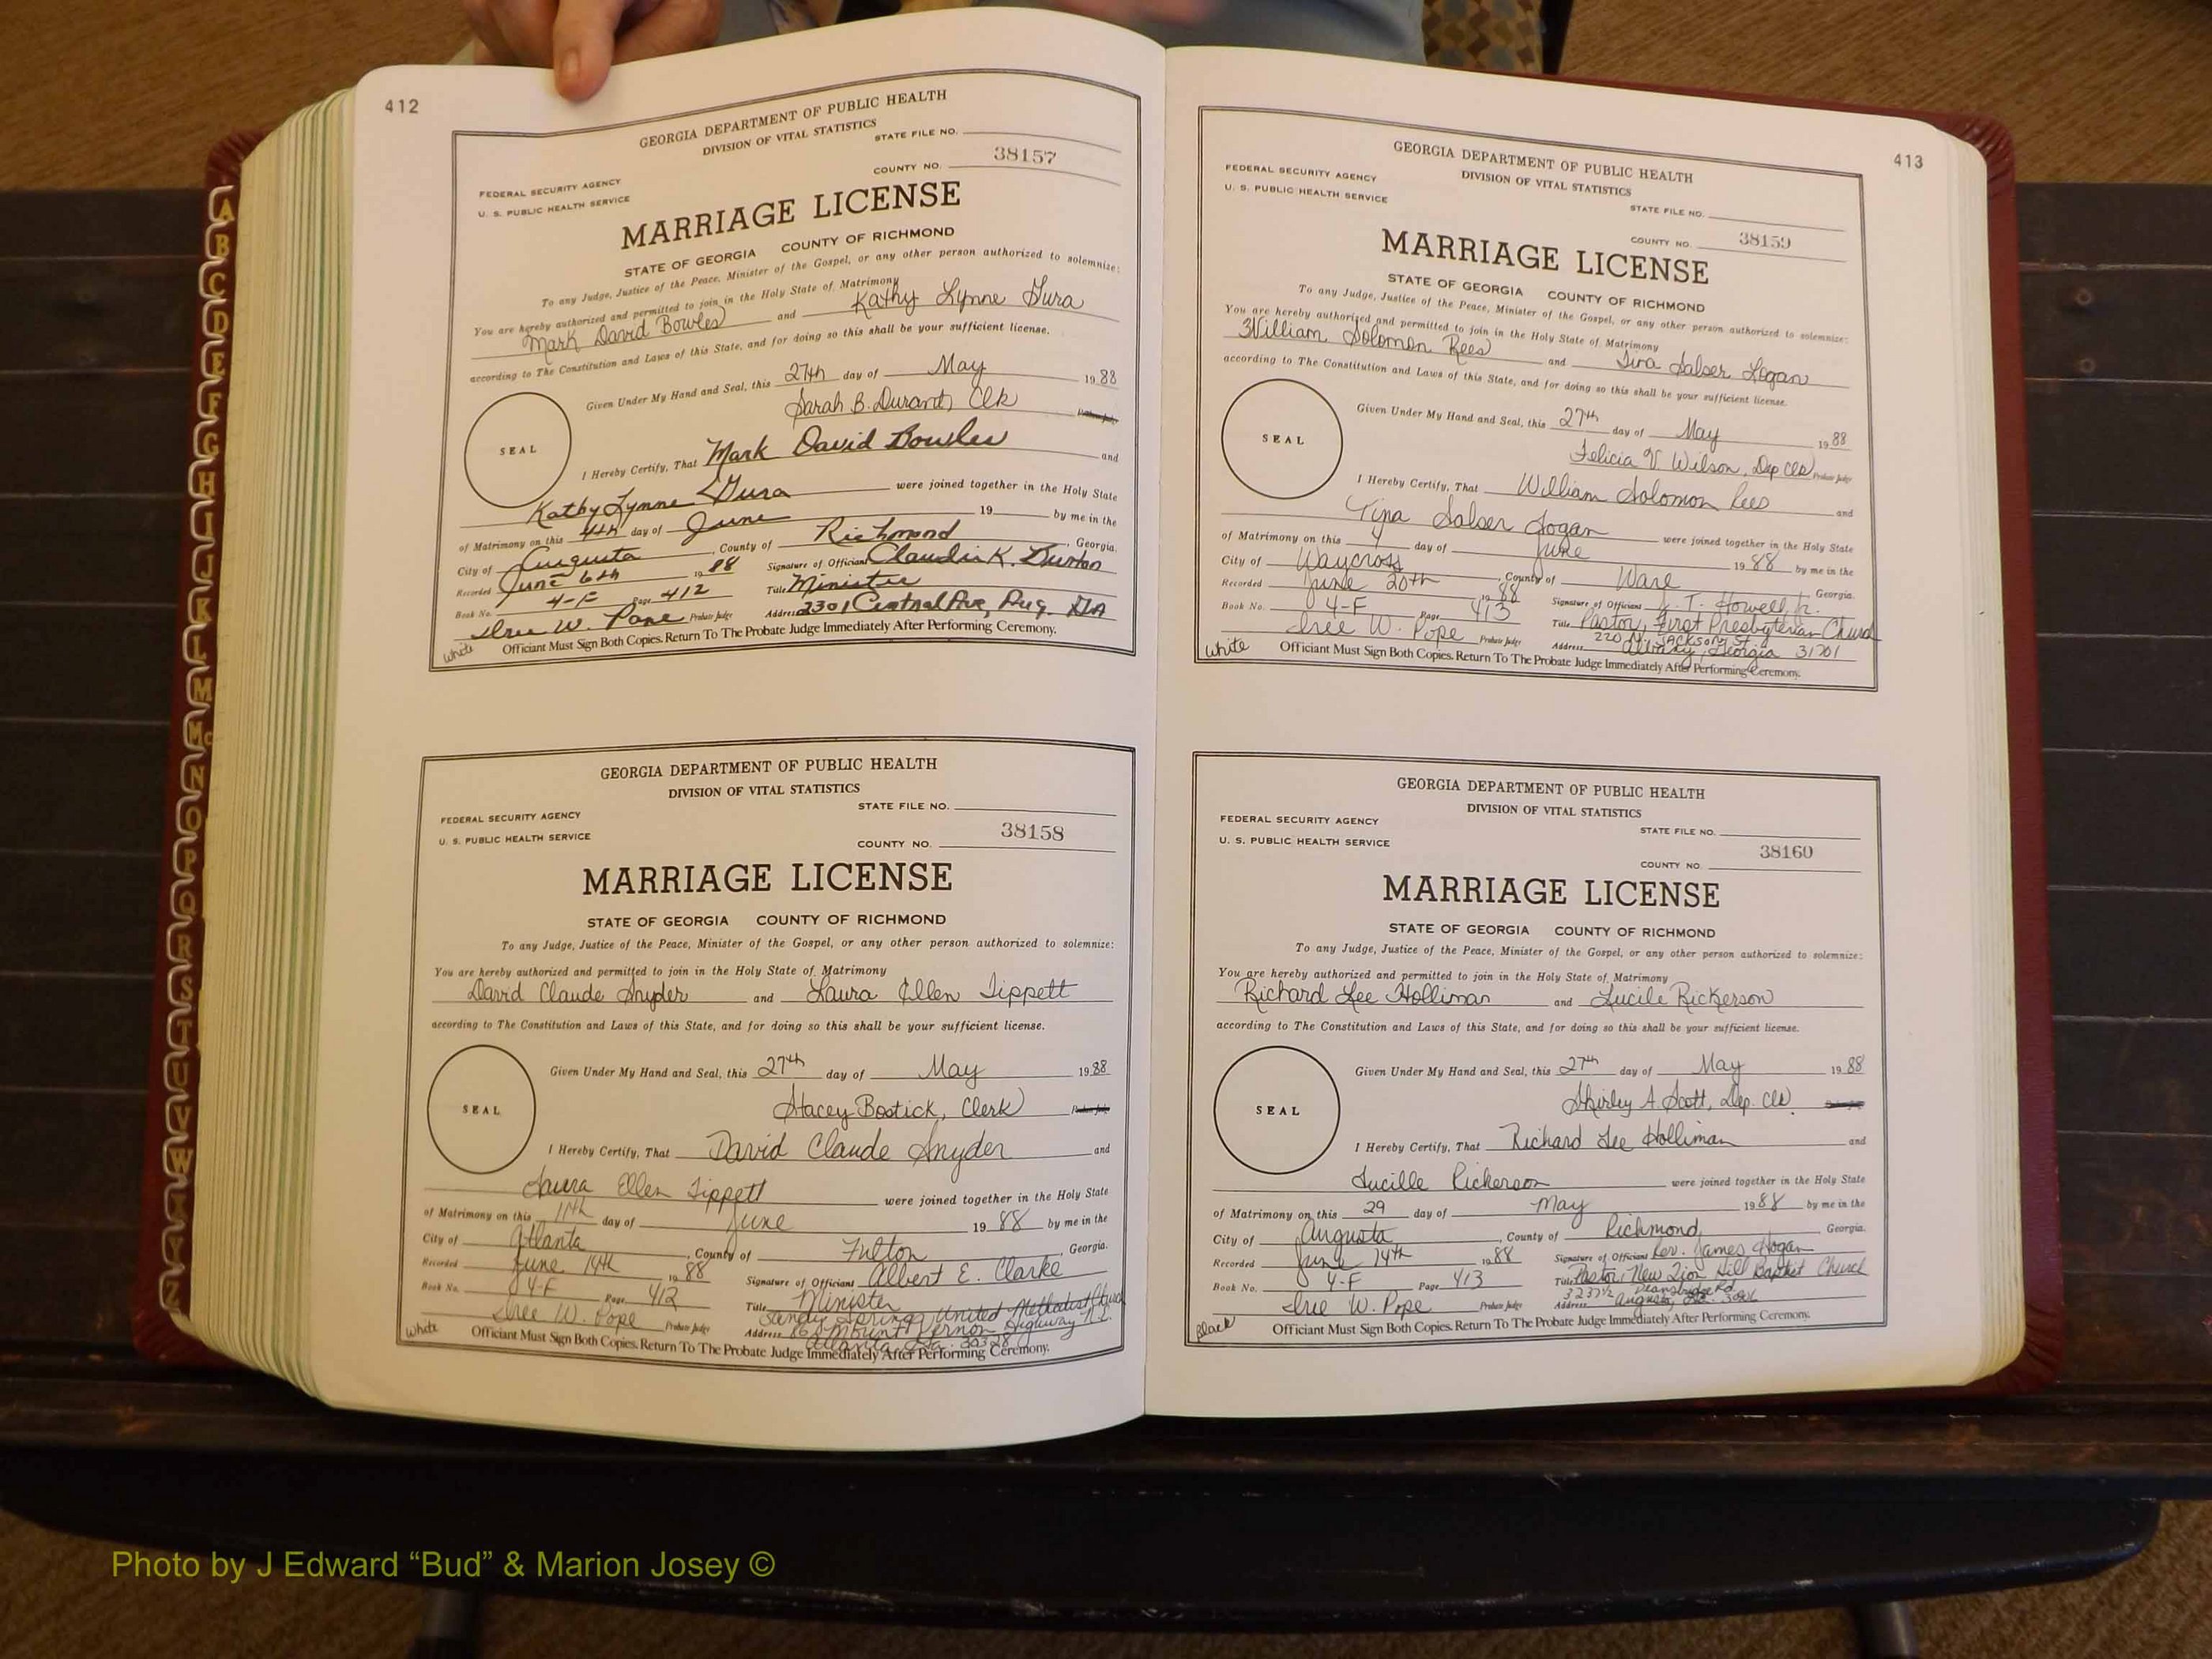 412
GEORGIA DEPARTMENT OF PUBLIC HEALTH
DIVISION OF VITAL STATISTICS
STATE FILE NO.
38157
COUNTY NO.
FEDERAL SECURITY AGENCY
U. S. PUBLIC HEALTH SERVICE
MARRIAGE LICENSE
STATE OF GEORGIA COUNTY OF RICHMOND
To any Judge, Justice of the Peace, Minister of the Gospel, or any other person authorized to solemnize:
You are hereby authorized and permitted to join in the Holy State of Matrimony
Mark David Bowles and Kathy Lynne Gura
according to The Constitution and Laws of this State, and for doing so this shall be your sufficient license.
Given Under My Hand and Seal, this 27th day of May 1988
Sarah B. Durant, Clk
SEAL
I Hereby Certify, That Mark David Bowles and
Kathy Lynne Gura were joined together in the Holy State
of Matrimony on this 4th day of June 19 by me in the
City of Augusta, County of Richmond, Georgia.
Recorded June 6th 1988 Signature of Officiant Claudia K. Burton
Book No. 4-F Page 412 Title Minister
Iree W. Pope Probate Judge Address 2301 Central Ave, Aug. GA
White
Officiant Must Sign Both Copies. Return To The Probate Judge Immediately After Performing Ceremony.
GEORGIA DEPARTMENT OF PUBLIC HEALTH
DIVISION OF VITAL STATISTICS
STATE FILE NO.
FEDERAL SECURITY AGENCY
38158
U. S. PUBLIC HEALTH SERVICE
COUNTY NO.
MARRIAGE LICENSE
STATE OF GEORGIA COUNTY OF RICHMOND
To any Judge, Justice of the Peace, Minister of the Gospel, or any other person authorized to solemnize:
You are hereby authorized and permitted to join in the Holy State of Matrimony
David Claude Snyder and Laura Ellen Tippett
according to The Constitution and Laws of this State, and for doing so this shall be your sufficient license.
Given Under My Hand and Seal, this 27th day of May 1988
Stacey Bostick, Clerk
SEAL
I Hereby Certify, That David Claude Snyder and
Laura Ellen Tippett were joined together in the Holy State
of Matrimony on this 11th day of June 1988 by me in the
City of Atlanta, County of Fulton, Georgia.
Recorded June 14th 1988 Signature of Officiant Albert E. Clarke
Book No. 4-F Page 412 Title Minister
Sandy Springs United Methodist Church
Iree W. Pope Probate Judge Address 86 Mount Vernon Highway N.E.
Atlanta, Ga. 30328
White
Officiant Must Sign Both Copies. Return To The Probate Judge Immediately After Performing Ceremony.
413
GEORGIA DEPARTMENT OF PUBLIC HEALTH
DIVISION OF VITAL STATISTICS
FEDERAL SECURITY AGENCY
U. S. PUBLIC HEALTH SERVICE
STATE FILE NO.
COUNTY NO. 38159
MARRIAGE LICENSE
STATE OF GEORGIA COUNTY OF RICHMOND
To any Judge, Justice of the Peace, Minister of the Gospel, or any other person authorized to solemnize:
You are hereby authorized and permitted to join in the Holy State of Matrimony
William Solomon Rees and Tina Salser Logan
according to The Constitution and Laws of this State, and for doing so this shall be your sufficient license.
Given Under My Hand and Seal, this 27th day of May 1988
Felicia V. Wilson, Dep Clk Probate Judge
SEAL
I Hereby Certify, That William Solomon Rees and
Tina Salser Logan were joined together in the Holy State
of Matrimony on this day of June 1988 by me in the
City of Waycross, County of Ware Georgia.
Recorded June 20th 1988 Signature of Officiant T. Howell, Jr.
Book No. 4-F Page 413 Title Pastor, First Presbyterian Church
220 N. Jackson St.
Iree W. Pope Probate Judge Address Albany, Georgia 31701
White
Officiant Must Sign Both Copies. Return To The Probate Judge Immediately After Performing Ceremony.
GEORGIA DEPARTMENT OF PUBLIC HEALTH
DIVISION OF VITAL STATISTICS
FEDERAL SECURITY AGENCY
STATE FILE NO.
U. S. PUBLIC HEALTH SERVICE
38160
COUNTY NO.
MARRIAGE LICENSE
STATE OF GEORGIA COUNTY OF RICHMOND
To any Judge, Justice of the Peace, Minister of the Gospel, or any other person authorized to solemnize:
You are hereby authorized and permitted to join in the Holy State of Matrimony
Richard Lee Holliman and Lucile Rickerson
according to The Constitution and Laws of this State, and for doing so this shall be your sufficient license.
Given Under My Hand and Seal, this 27th day of May 1988
Shirley A. Scott, Dep. Clk.
SEAL
I Hereby Certify, That Richard Lee Holliman and
Lucille Rickerson were joined together in the Holy State
of Matrimony on this 29 day of May 1988 by me in the
City of Augusta, County of Richmond, Georgia.
Recorded June 14th 1988 Signature of Officiant Rev. James Hogan
Book No. 4-F Page 413 Title Pastor, New Zion Hill Baptist Church
3237½ Deansbridge Rd
Iree W. Pope Probate Judge Address Augusta, Ga.
Black
Officiant Must Sign Both Copies. Return To The Probate Judge Immediately After Performing Ceremony.
A
B
C
D
E
F
G
H
I
J
K
L
M
Mc
N
O
P
Q
R
S
T
U
V
W
X
Y
Z
Photo by J Edward “Bud” & Marion Josey ©